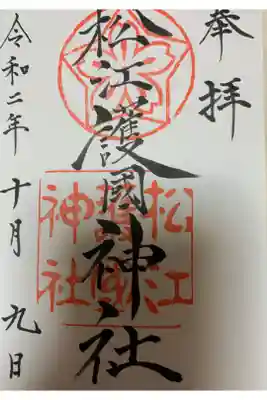 奉拝
松江護國神社
松江
護國
神社
令和二年 十月 九日